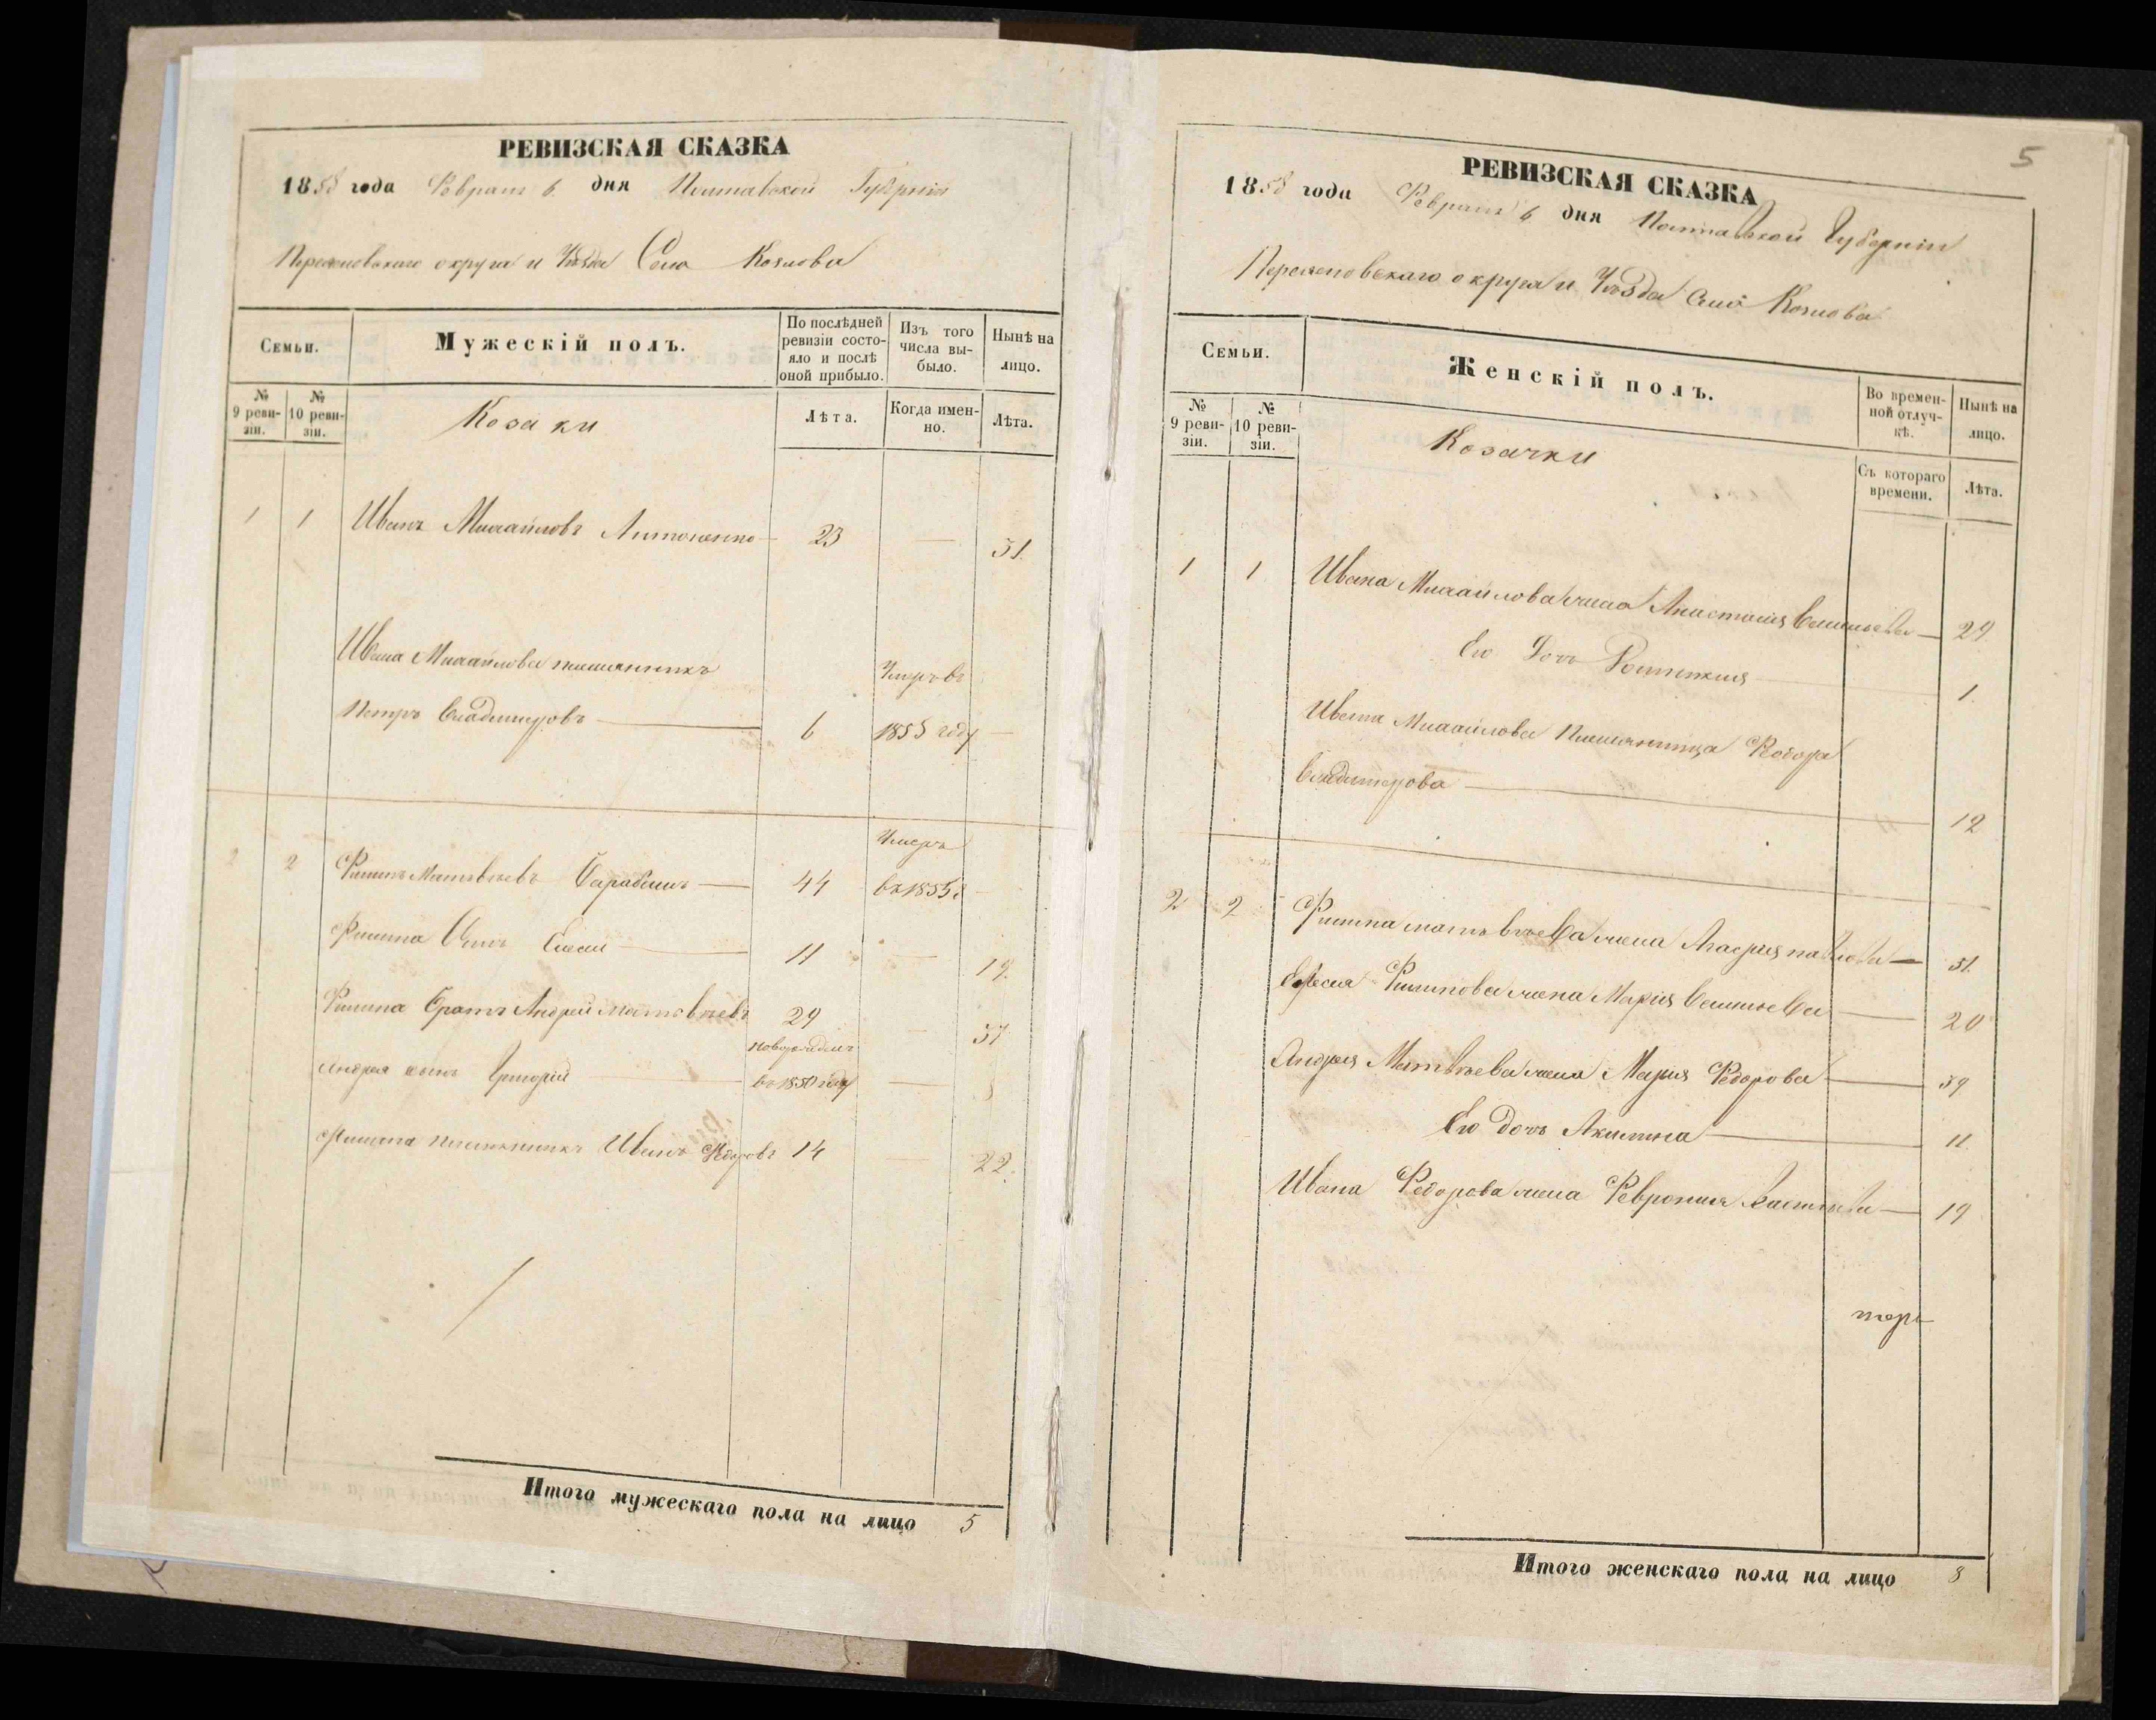 РЕВИЗСКАЯ СКАЗКА
1858 года Февраля 6 дня Полтавской Губерніи
Переяславскаго округа и Уѣзда Села Козлова
Семьи.
Мужескій полъ.
По послѣдней ревизіи состояло и послѣ оной прибыло.
Изъ того числа выбыло.
Нынѣ на лицо.
№ 9 ревизіи.
№ 10 ревизіи.
Козаки
Лѣта.
Когда именно.
Лѣта.
1 1 Иванъ Михайловъ 23 — 31.
Ивана Михайлова племянникъ Умеръ въ
Петръ Владимировъ — 6 1855 году —
Умеръ
2 2 Филипъ Матвѣевъ Барабашъ — 44 въ 1855 г —
Филипа Сынъ Елисей — 11 — 19.
Филипа Братъ Андрей Матвѣевъ 29 — 37
новорожденъ
Андрея сынъ Григорій — въ 1850 году — 8
Филипа племянникъ Иванъ Федоровъ 14 — 22.
Итого мужескаго пола на лицо 5
5
РЕВИЗСКАЯ СКАЗКА
1858 года Февраля 6 дня Полтавской Губерніи
Переяславскаго округа и Уѣзда Села Козлова
Семьи.
Женскій полъ.
Во временной отлучкѣ.
Нынѣ на лицо.
№ 9 ревизіи.
№ 10 ревизіи.
Козачки
Съ котораго времени.
Лѣта.
1 1 Ивана Михайлова жена Анастасія Васильева — 29
Его Дочь — 1.
Ивана Михайлова Племянница Федора
Владимерова — 12
2 2 Филипа Матвѣева жена Агафія Павлова — 51.
Елисея Филипова жена Марія Васильева — 20
Андрея Матвѣева жена Марія Федорова — 39
Его дочь Акилина — 11.
Ивана Федорова жена Февронія — 19
Итого женскаго пола на лицо 8